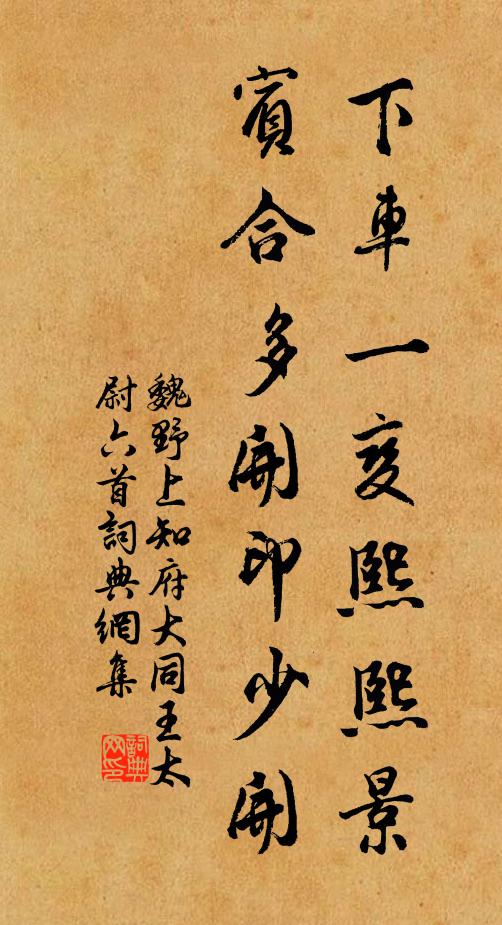 下車一变熙熙景
賓合多開印少開
魏野上知府大同王太
尉六首詞典網集
詞典网印